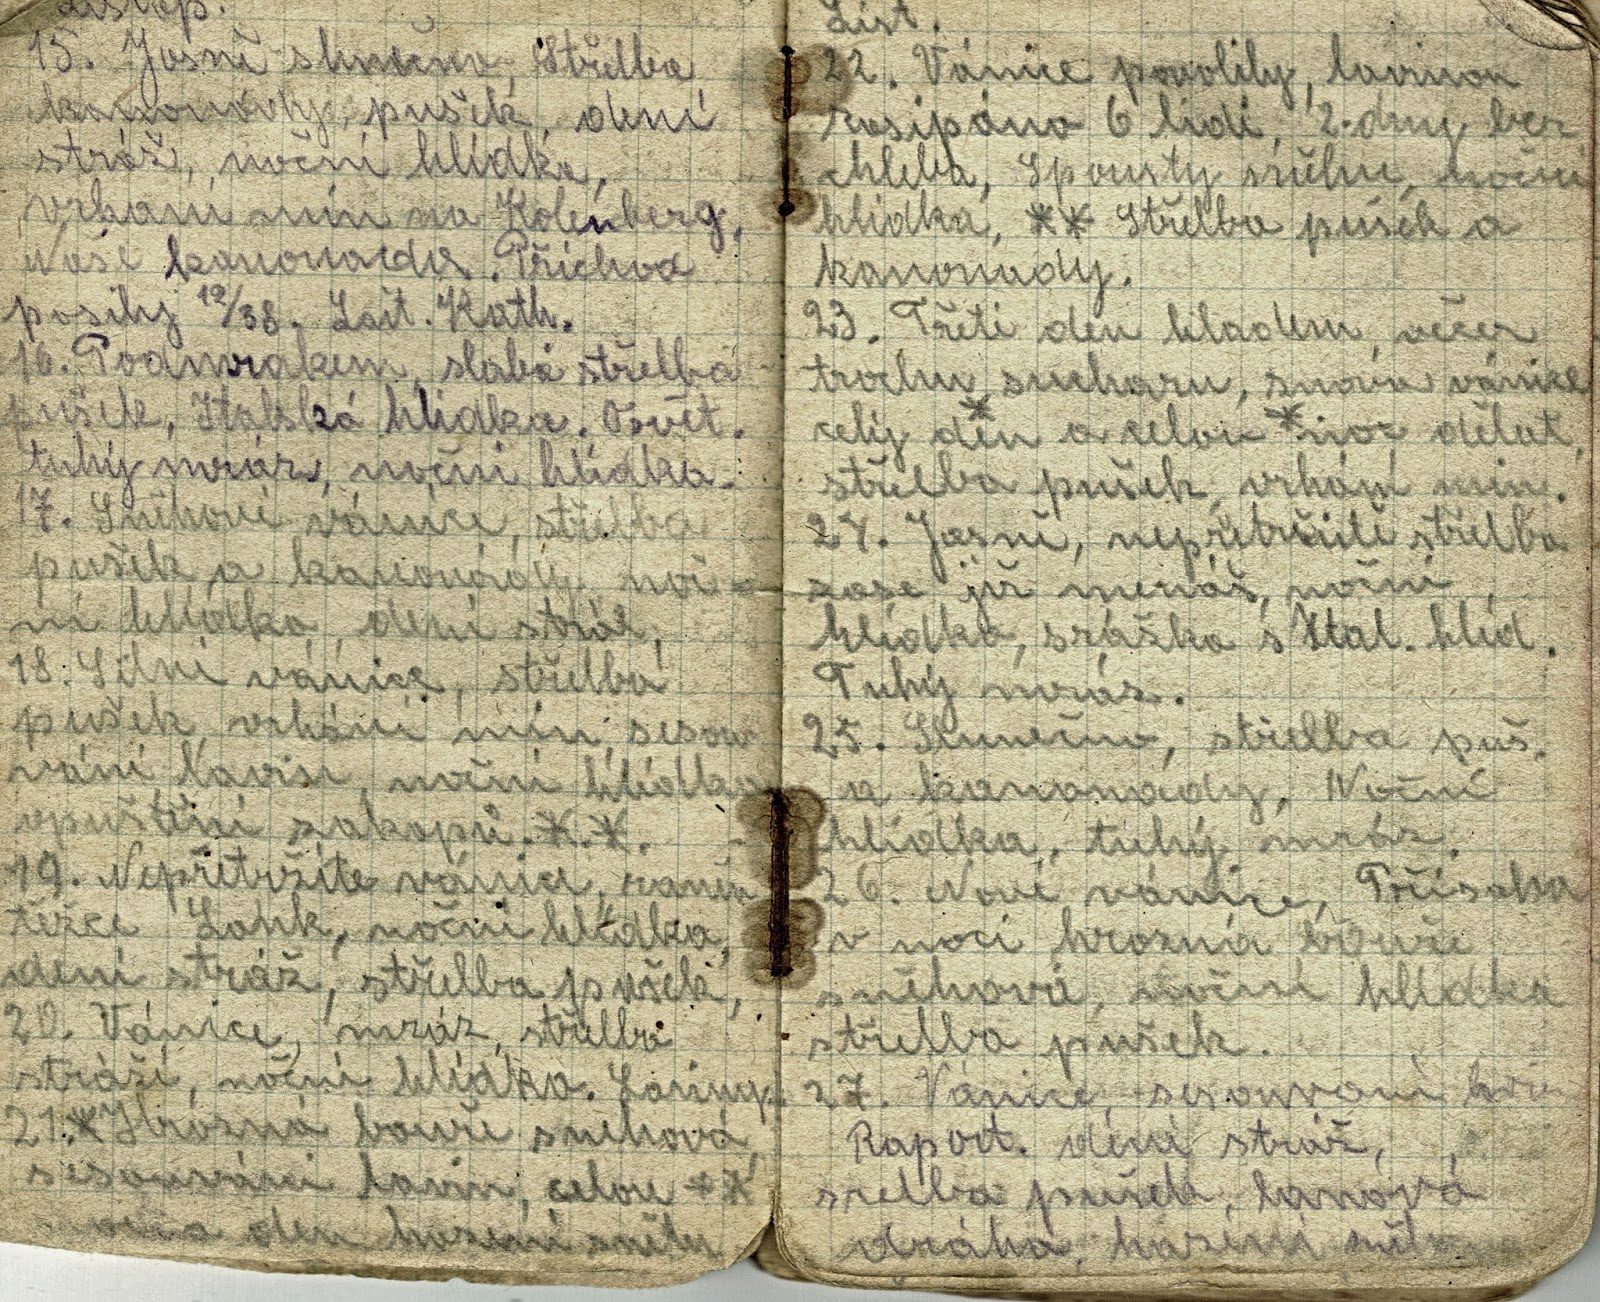 Listop.
15. Jasně slunečno, střelba
kanonády, pušek, dení
stráž, noční hlídka,
vrhaní min na Kolenberg,
Naše kanonáda. Příchod
posily 12/38. Lait. Kath.
16. Podmrakem, slabá střelba
pušek, Italská hlídka. Osvět.
tuhý mráz, noční hlídka.
17. Sněhové vánice, střelba
pušek a kanonády noč=
ní hlídka, dení stráž,
18. Silní vánice, střelba
pušek, vrhání min, sesou
vání lavin, noční hlídka
opuštění zakopů. *.*.
19. Nepřetržíte vánice, raněn
těžce Lank, noční hlídka,
dení stráž, střelba pušek,
20. Vánice, mráz, střelba
stráží, noční hlídka. Laviny.
21.* Hrozná bouře sněhová,
sesouvání lavin, celou **
noc a den házení sněhu
List.
22. Vánice povolily, lavinou
zasipáno 6 lidí, 2. dny bez
chleba, Spousty sněhu, noční
hlídka, ** Střelba pušek a
kanonády.
23. Třetí den hladem, večer
trochu sucharu, snova vánice
celý den * a celou * noc dělat,
střelba pušek, vrhání min.
24. Jasně, nepřetržitě střelba
zase již menáž, noční
hlídka, srážka s Ital. hlíd.
Tuhý mráz.
25. Slunečno, střelba puš.
a kanonády, Noční
hlídka, tuhý mráz.
26. Nové vánice, Přísaha
v noci hrozná bouře
sněhová, noční hlídka
střelba pušek.
27. Vánice, sesouvaní lavin
Raport. dení stráž,
střelba pušek, lanová
dráha, házení sněhu